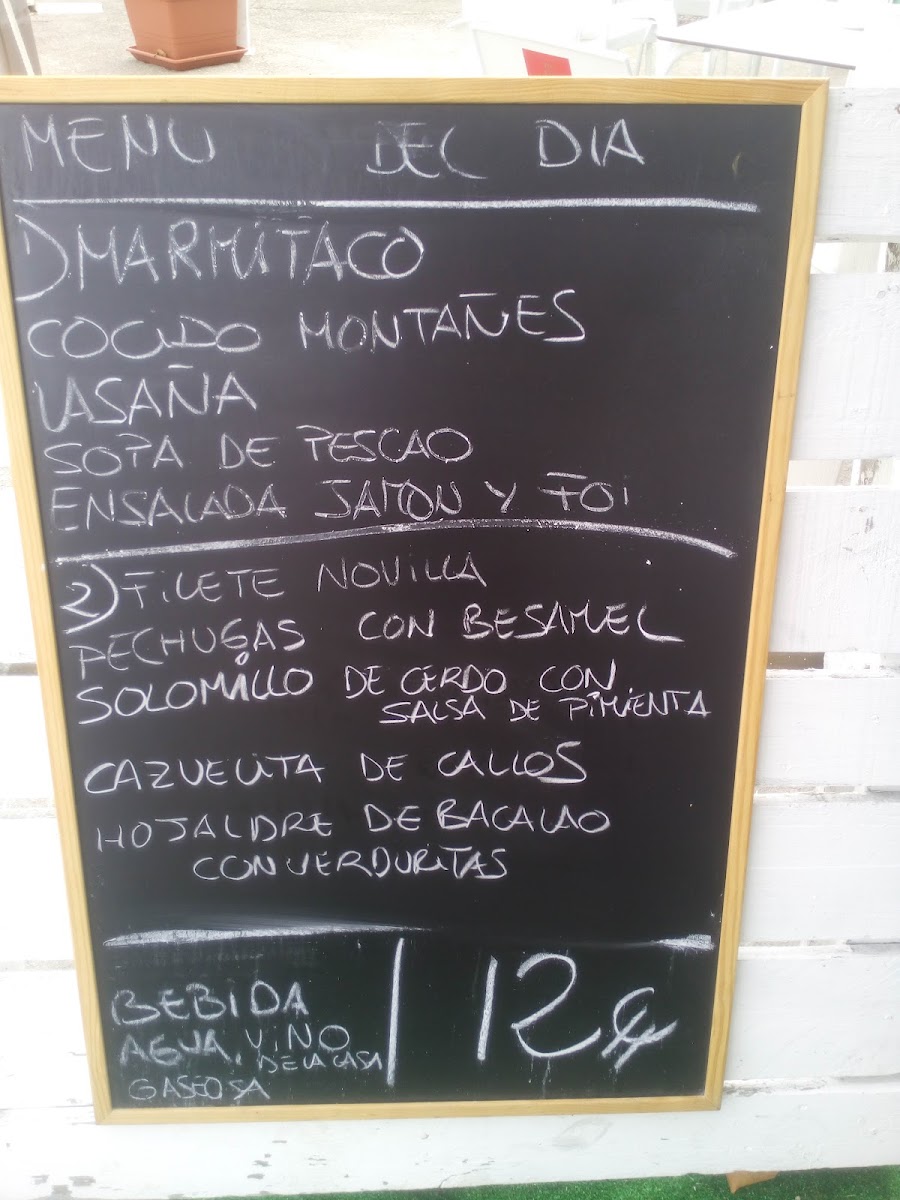 MENU DEL DIA
1) MARMITACO
COCIDO MONTAÑES
LASAÑA
SOPA DE PESCAO
ENSALADA JAMON Y FOI
2) FILETE NOVILLA
PECHUGAS CON BESAMEL
SOLOMILLO DE CERDO CON
SALSA DE PIMIENTA
CAZUELITA DE CALLOS
HOJALDRE DE BACALAO
CON VERDURITAS
BEBIDA
AGUA, VINO
DE LA CASA
GASEOSA
12 €